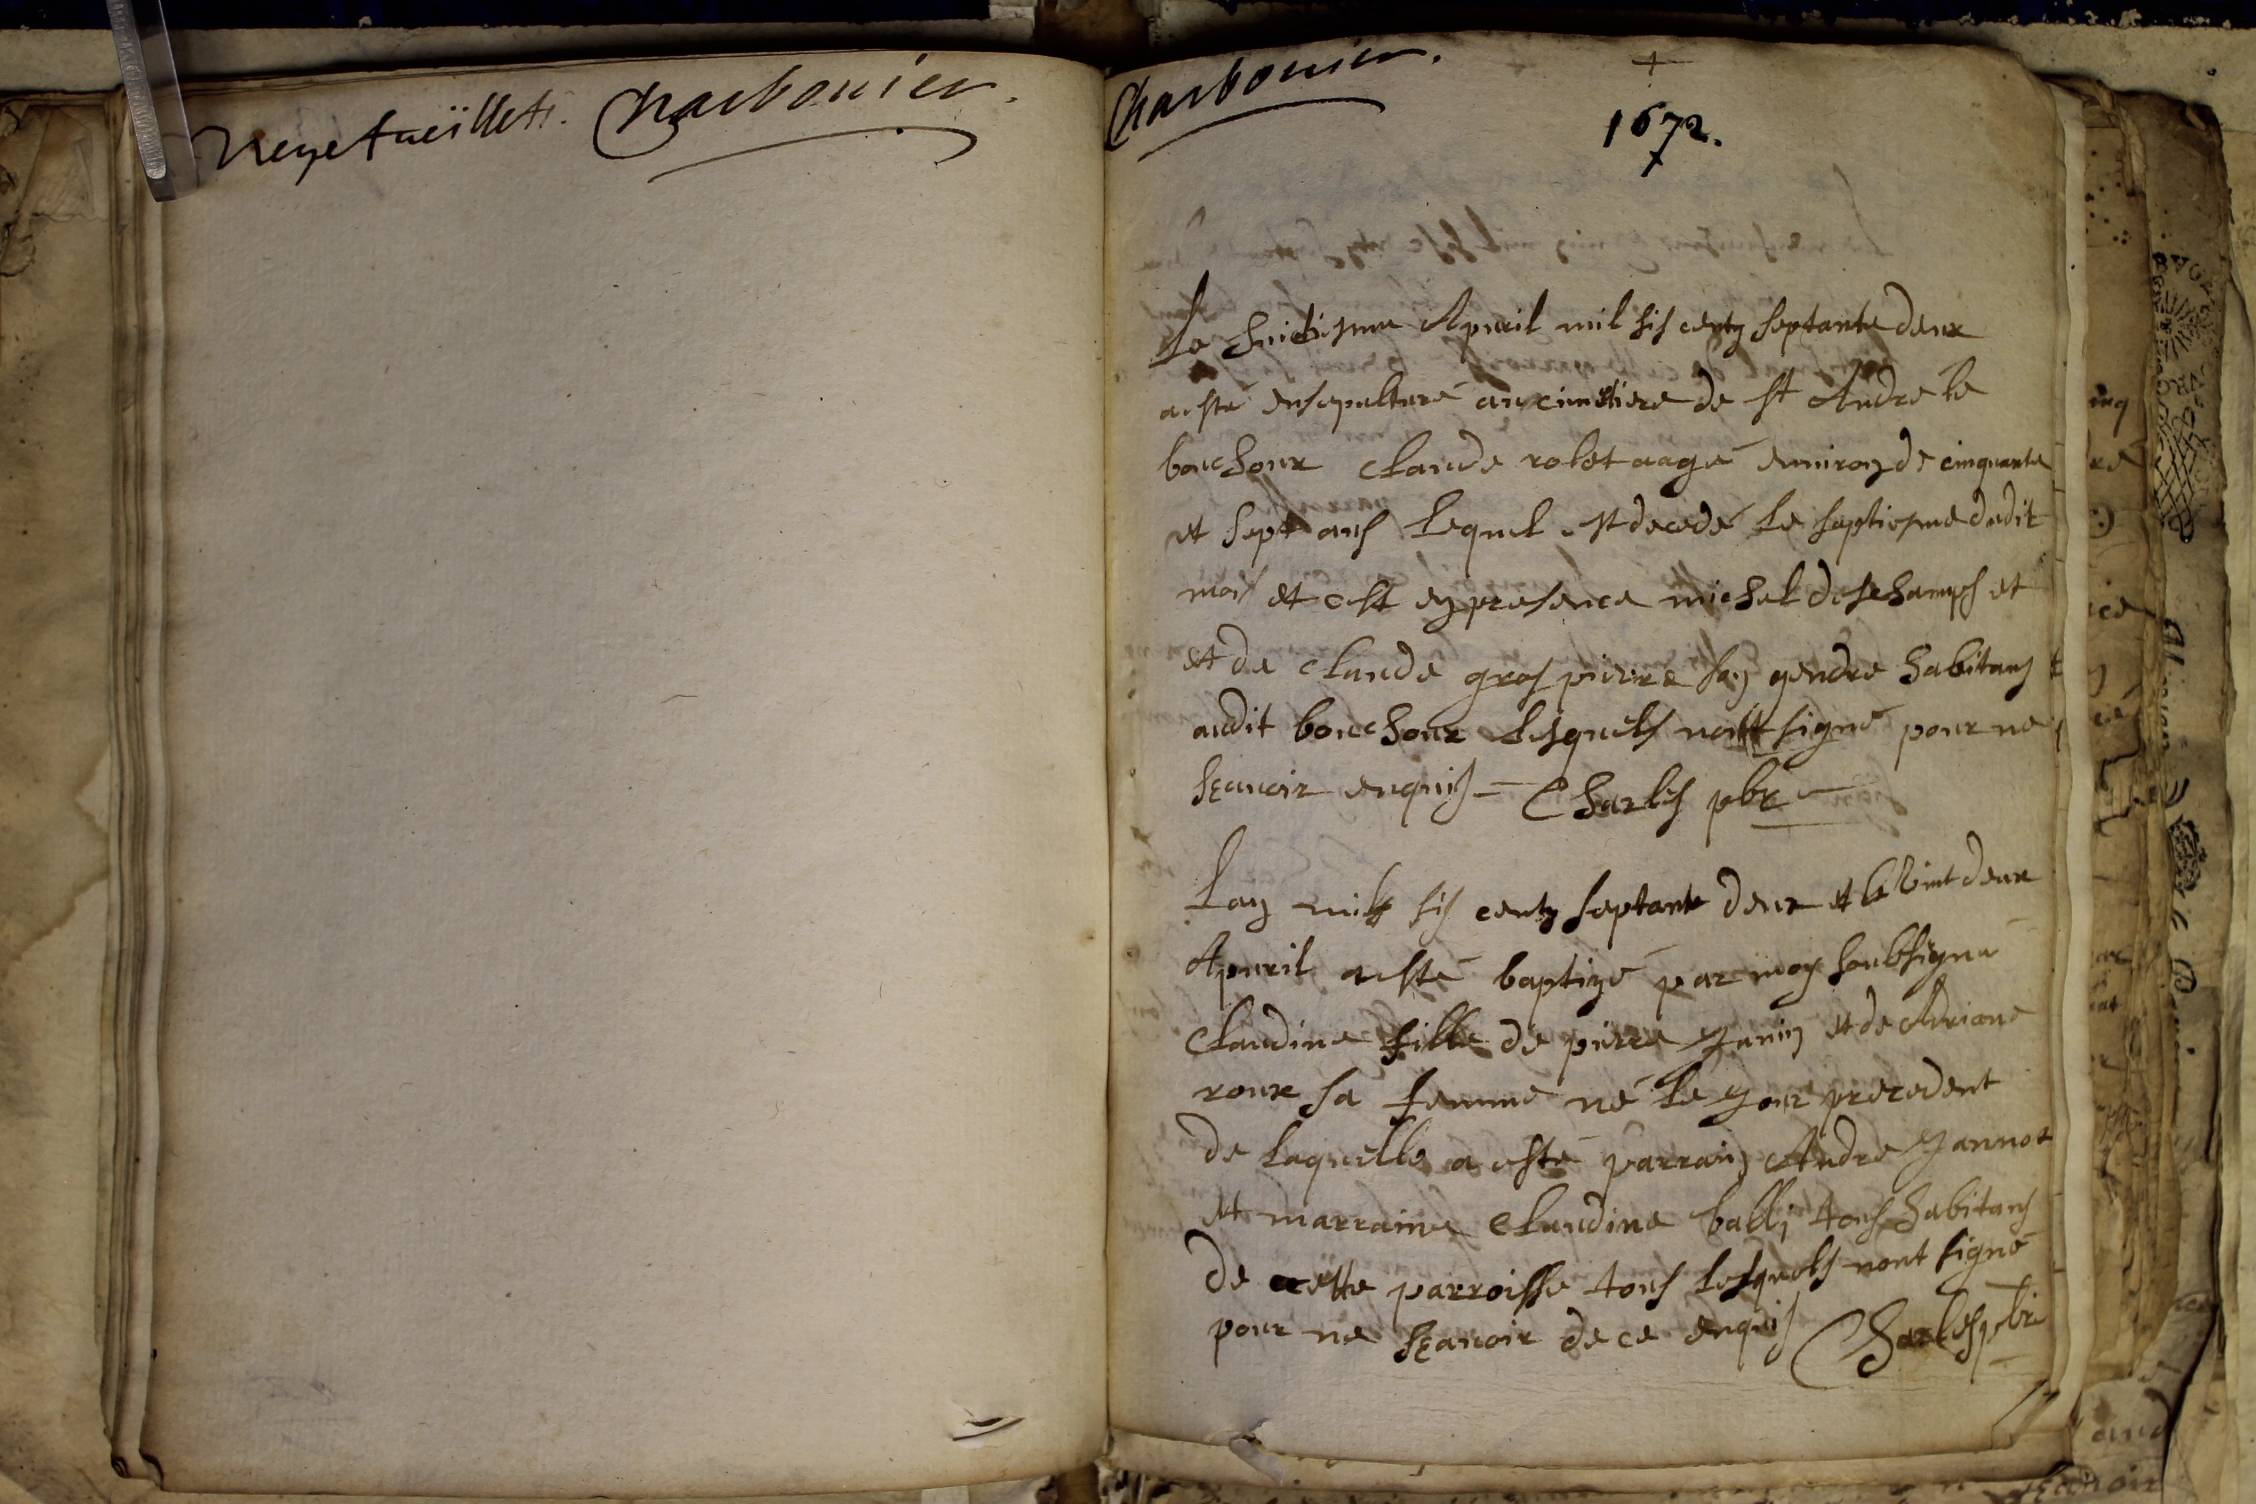 feüillets. Charbonier.
Charbonier.
+
1672.
Le huictiesme Apuril mil six centz septante deux
a esté ensepulturé au cimetiere de st Andre le
bouchoux Claude robet aagé enuiron de cinquante
et sept ans lequel est decedé le septiesme dudit
mois et cest en presence michel deschamps et
et de Claude grospierre son gendre habitans
audit bouchoux lesquels nont signé pour ne
sçauoir enquis = Charles pbr
Lan mil six centz septante deux et le vint deux
Apuril a esté baptizé par moy soubsigné
Claudine fille de pierre Janin et de Adriane
roux sa femme né le Jour precedent
de laquelle a esté parrain Andre Jannot
et marraine Claudine balli tous habitans
de cette parroisse tous lesquels nont signé
pour ne sçauoir de ce enquis Charles pbr